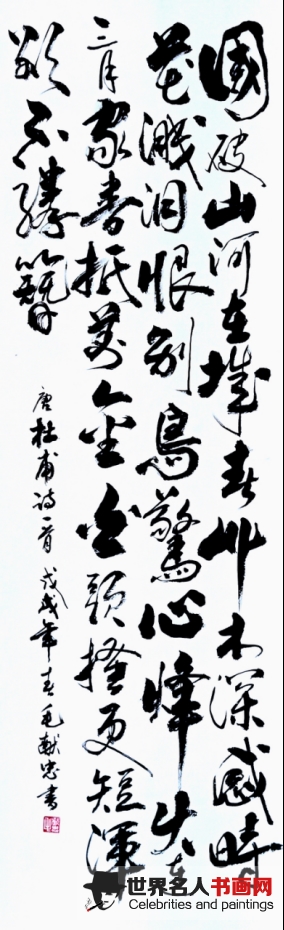 國破山河在城春艸木深感時
花濺泪恨别鳥驚心烽火連
三月家書抵萬金白頭搔更短渾
欲不勝簪
唐杜甫诗一首 戊戌年春毛献忠書
世界名人书画网
Celebrities and paintings